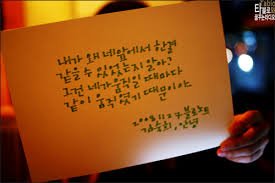 내가 왜 네 앞에서 한결
같을 수 있었는지 알아?
그건 네가 움직일 때마다
같이 움직였기 때문이야
2008.11.27 블로노트
안녕